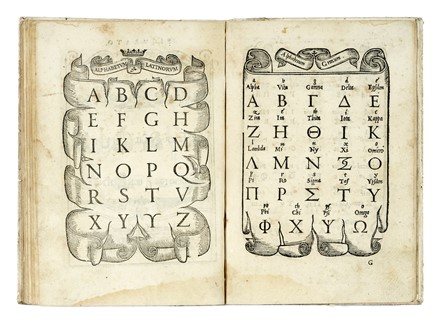 ALPHABETUM LATINORUM
A B C D
E F G H
I K L M
N O P Q
R S T V
X Y Z
Alphabetum Græcum
a v g d e
Alpha Vita Gamma Delta Epsilon
Α Β Γ Δ Ε
Zita Ita Thita Iota Kappa
Ζ Η Θ Ι Κ
Lambda Mi Ni Xi Omicro
Λ Μ Ν Ξ Ο
Pi Ro Sigma Taf Ypsilon
Π Ρ Σ Τ Υ
Phi Chi Psi Omega
Φ Χ Ψ Ω
G